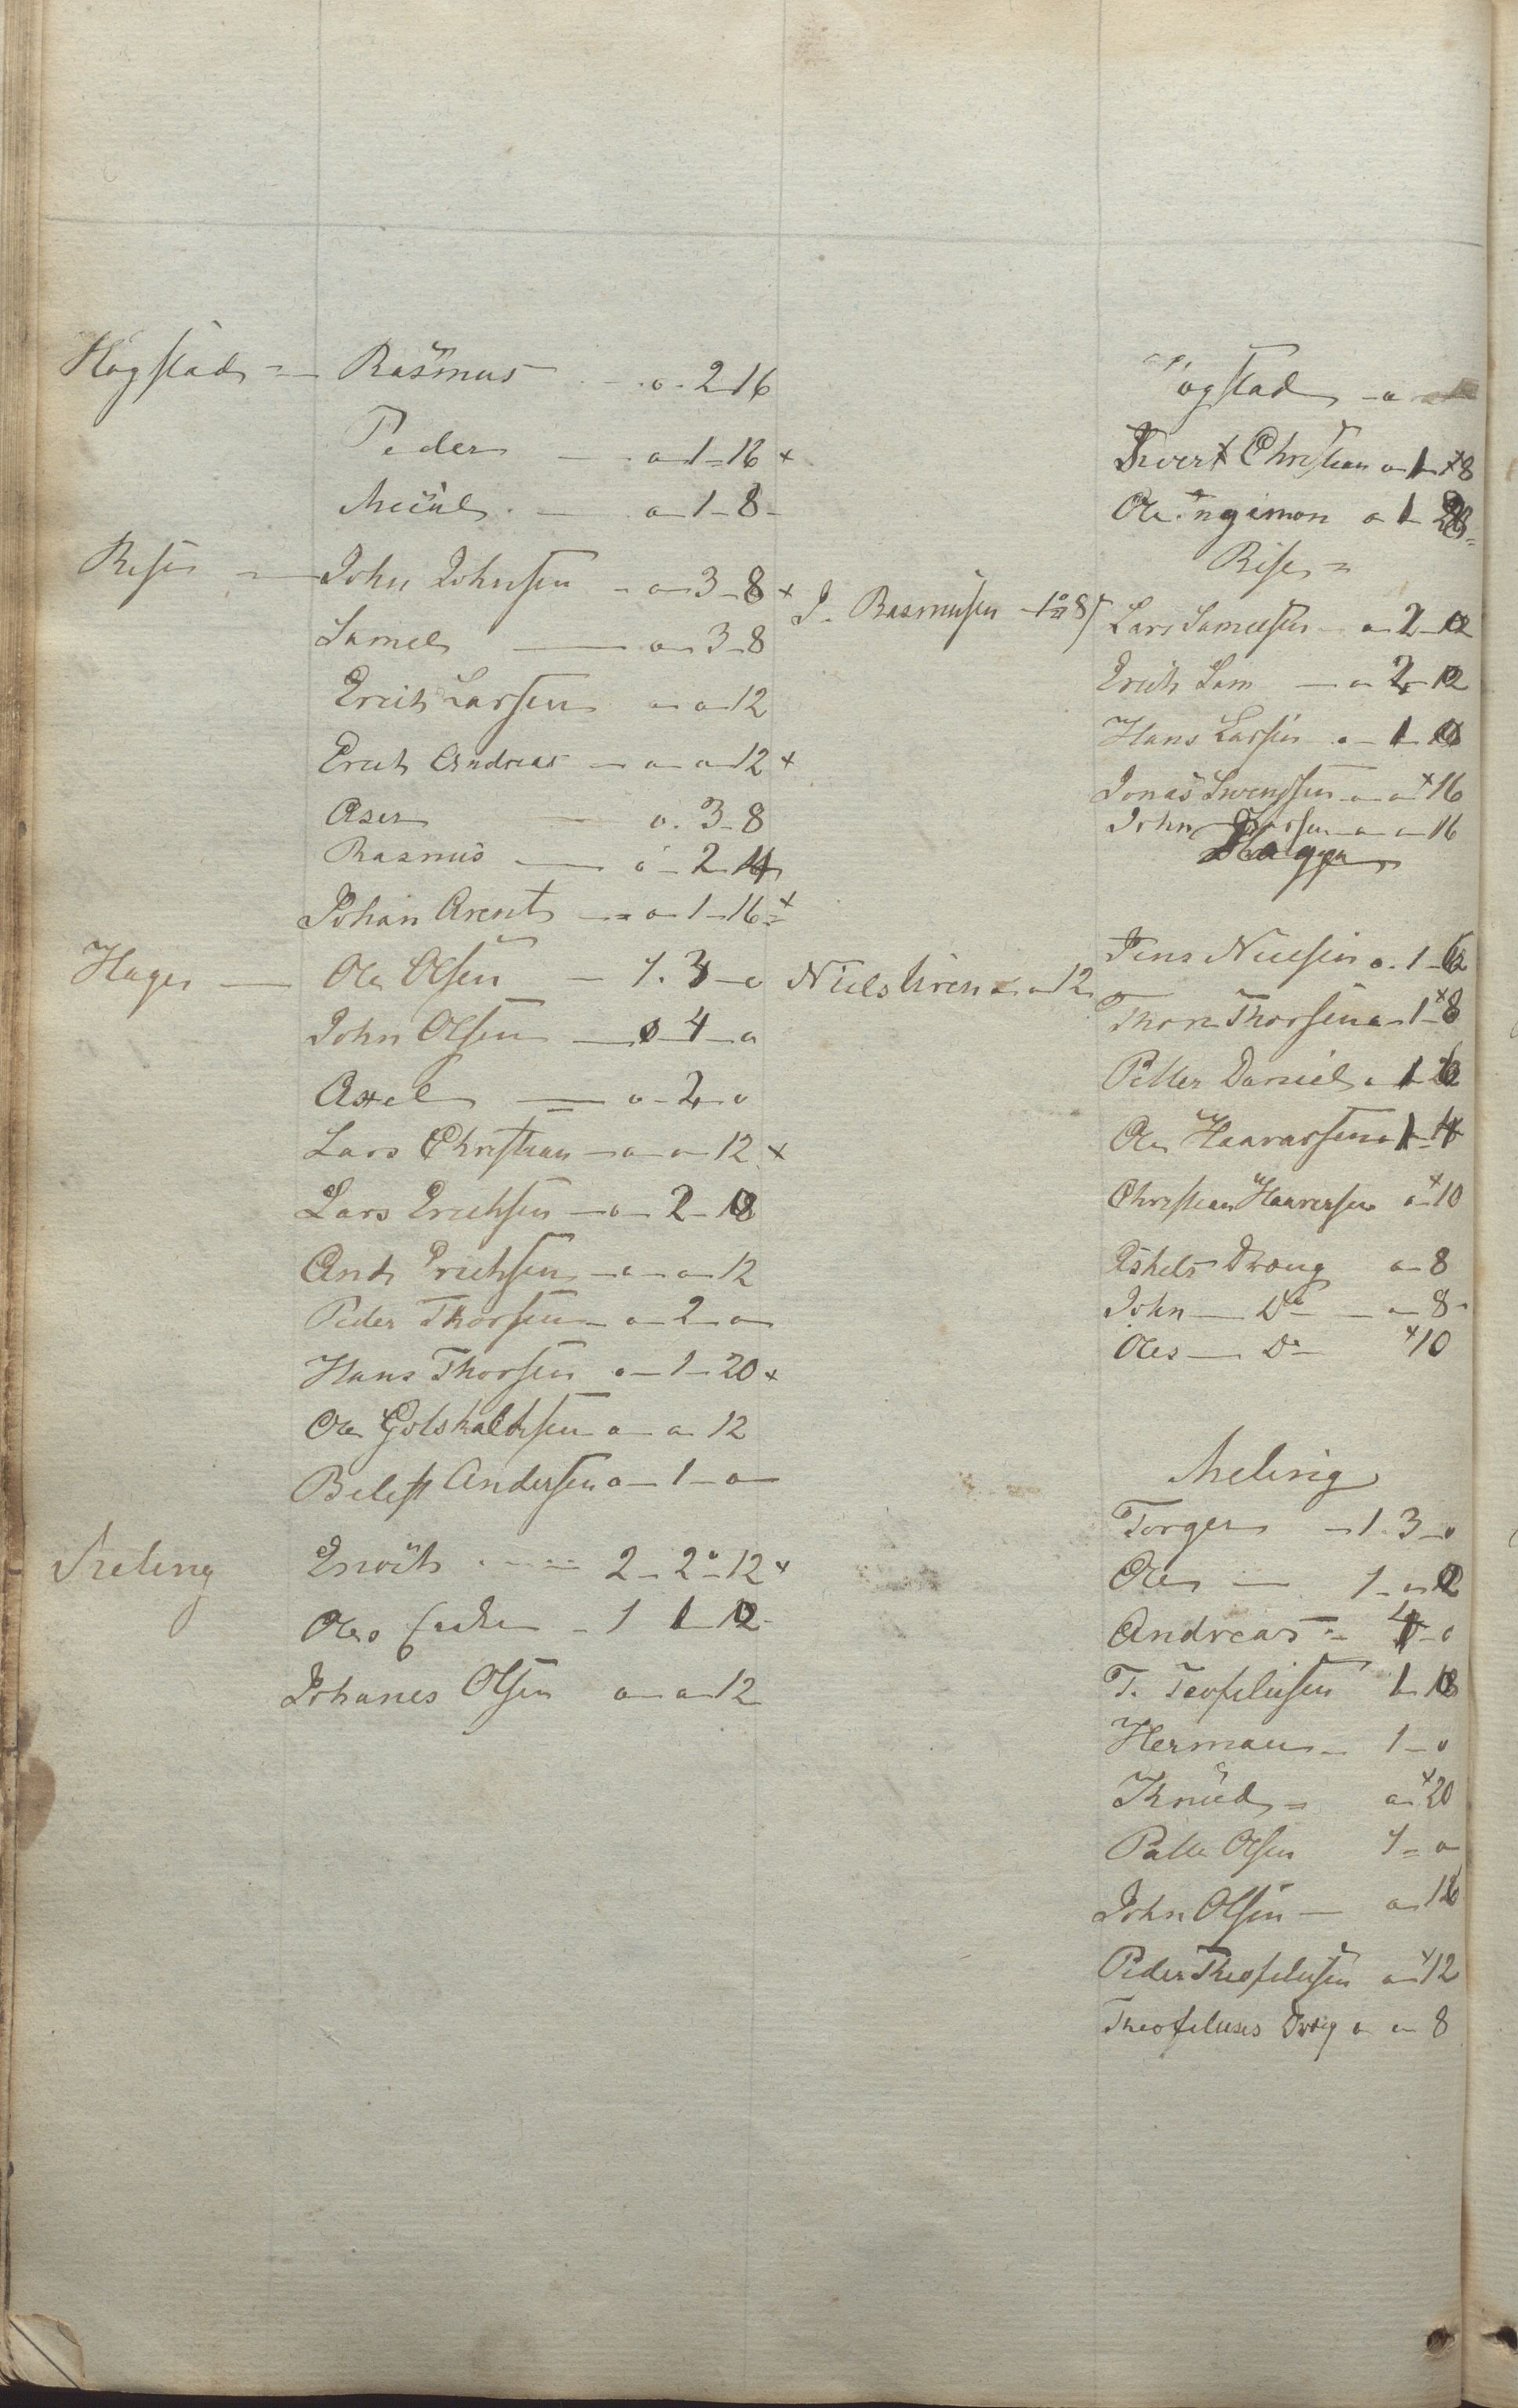 Høgstad = Rasmus - . o . 2 16
Peder — . o 1 = 16 x
Miiul . — o 1 - 8 -
Rise = John Johnsen - o 3 - 8 x
J. Rasmusen
Samel — o 3 - 8
Erich Larsen o o 12
Erich Andreas - o o 12 x
Aser — o . 3 - 8
Rasmus — o - 2
Johan Arent - o - 1 - 16 = x
Hage — Ole Olsen — 1 . 3 - o
Niels o 12
John Olsen — o 4 - o
Axel — o - 2 o
Lars Christian - o o 12 x
Lars Erichsen - o - 2 - 18
And Erichsen - o - o 12
Peder Thorsen - o - 2 - o
Hans Thorsen o - 1 - 20 x
Ole Gotskalksen o o 12
Andersen o - 1 - o
Meling Enoch - 2 - 2 - 12 x
Oles - 1 1 12 -
Johanes Olsen o o 12
øgstad - o
Sivert Christian o 1 x 8
Ole ngimon o 1
Rise =
Lars Samelsen - o 2
Erich Sam — o 2 12
Hans Larsen . o - 1
Jonas Swensen - o o x 16
John - o - o 16
Hage
Jens Nielsen o . 1
Thore Thorsen o 1 x 8
Petter Daniel o 1
Ole Haavarsen o 1
Christian Haaversen o x 10
Askels Dreng o 8
John — Do — o 8 -
Oles — Do x 10
Meling
Torger - 1 . 3 - o
Ole — 1 - o 12
Andreas - o
T. Teofelusen 1 18
Herman - 1 - o
Knud = o x 20
Peder Olsen 1 = o
John Olsen — o
Peder Theofelusen o x 12
Theofeluses Dreng o o 8